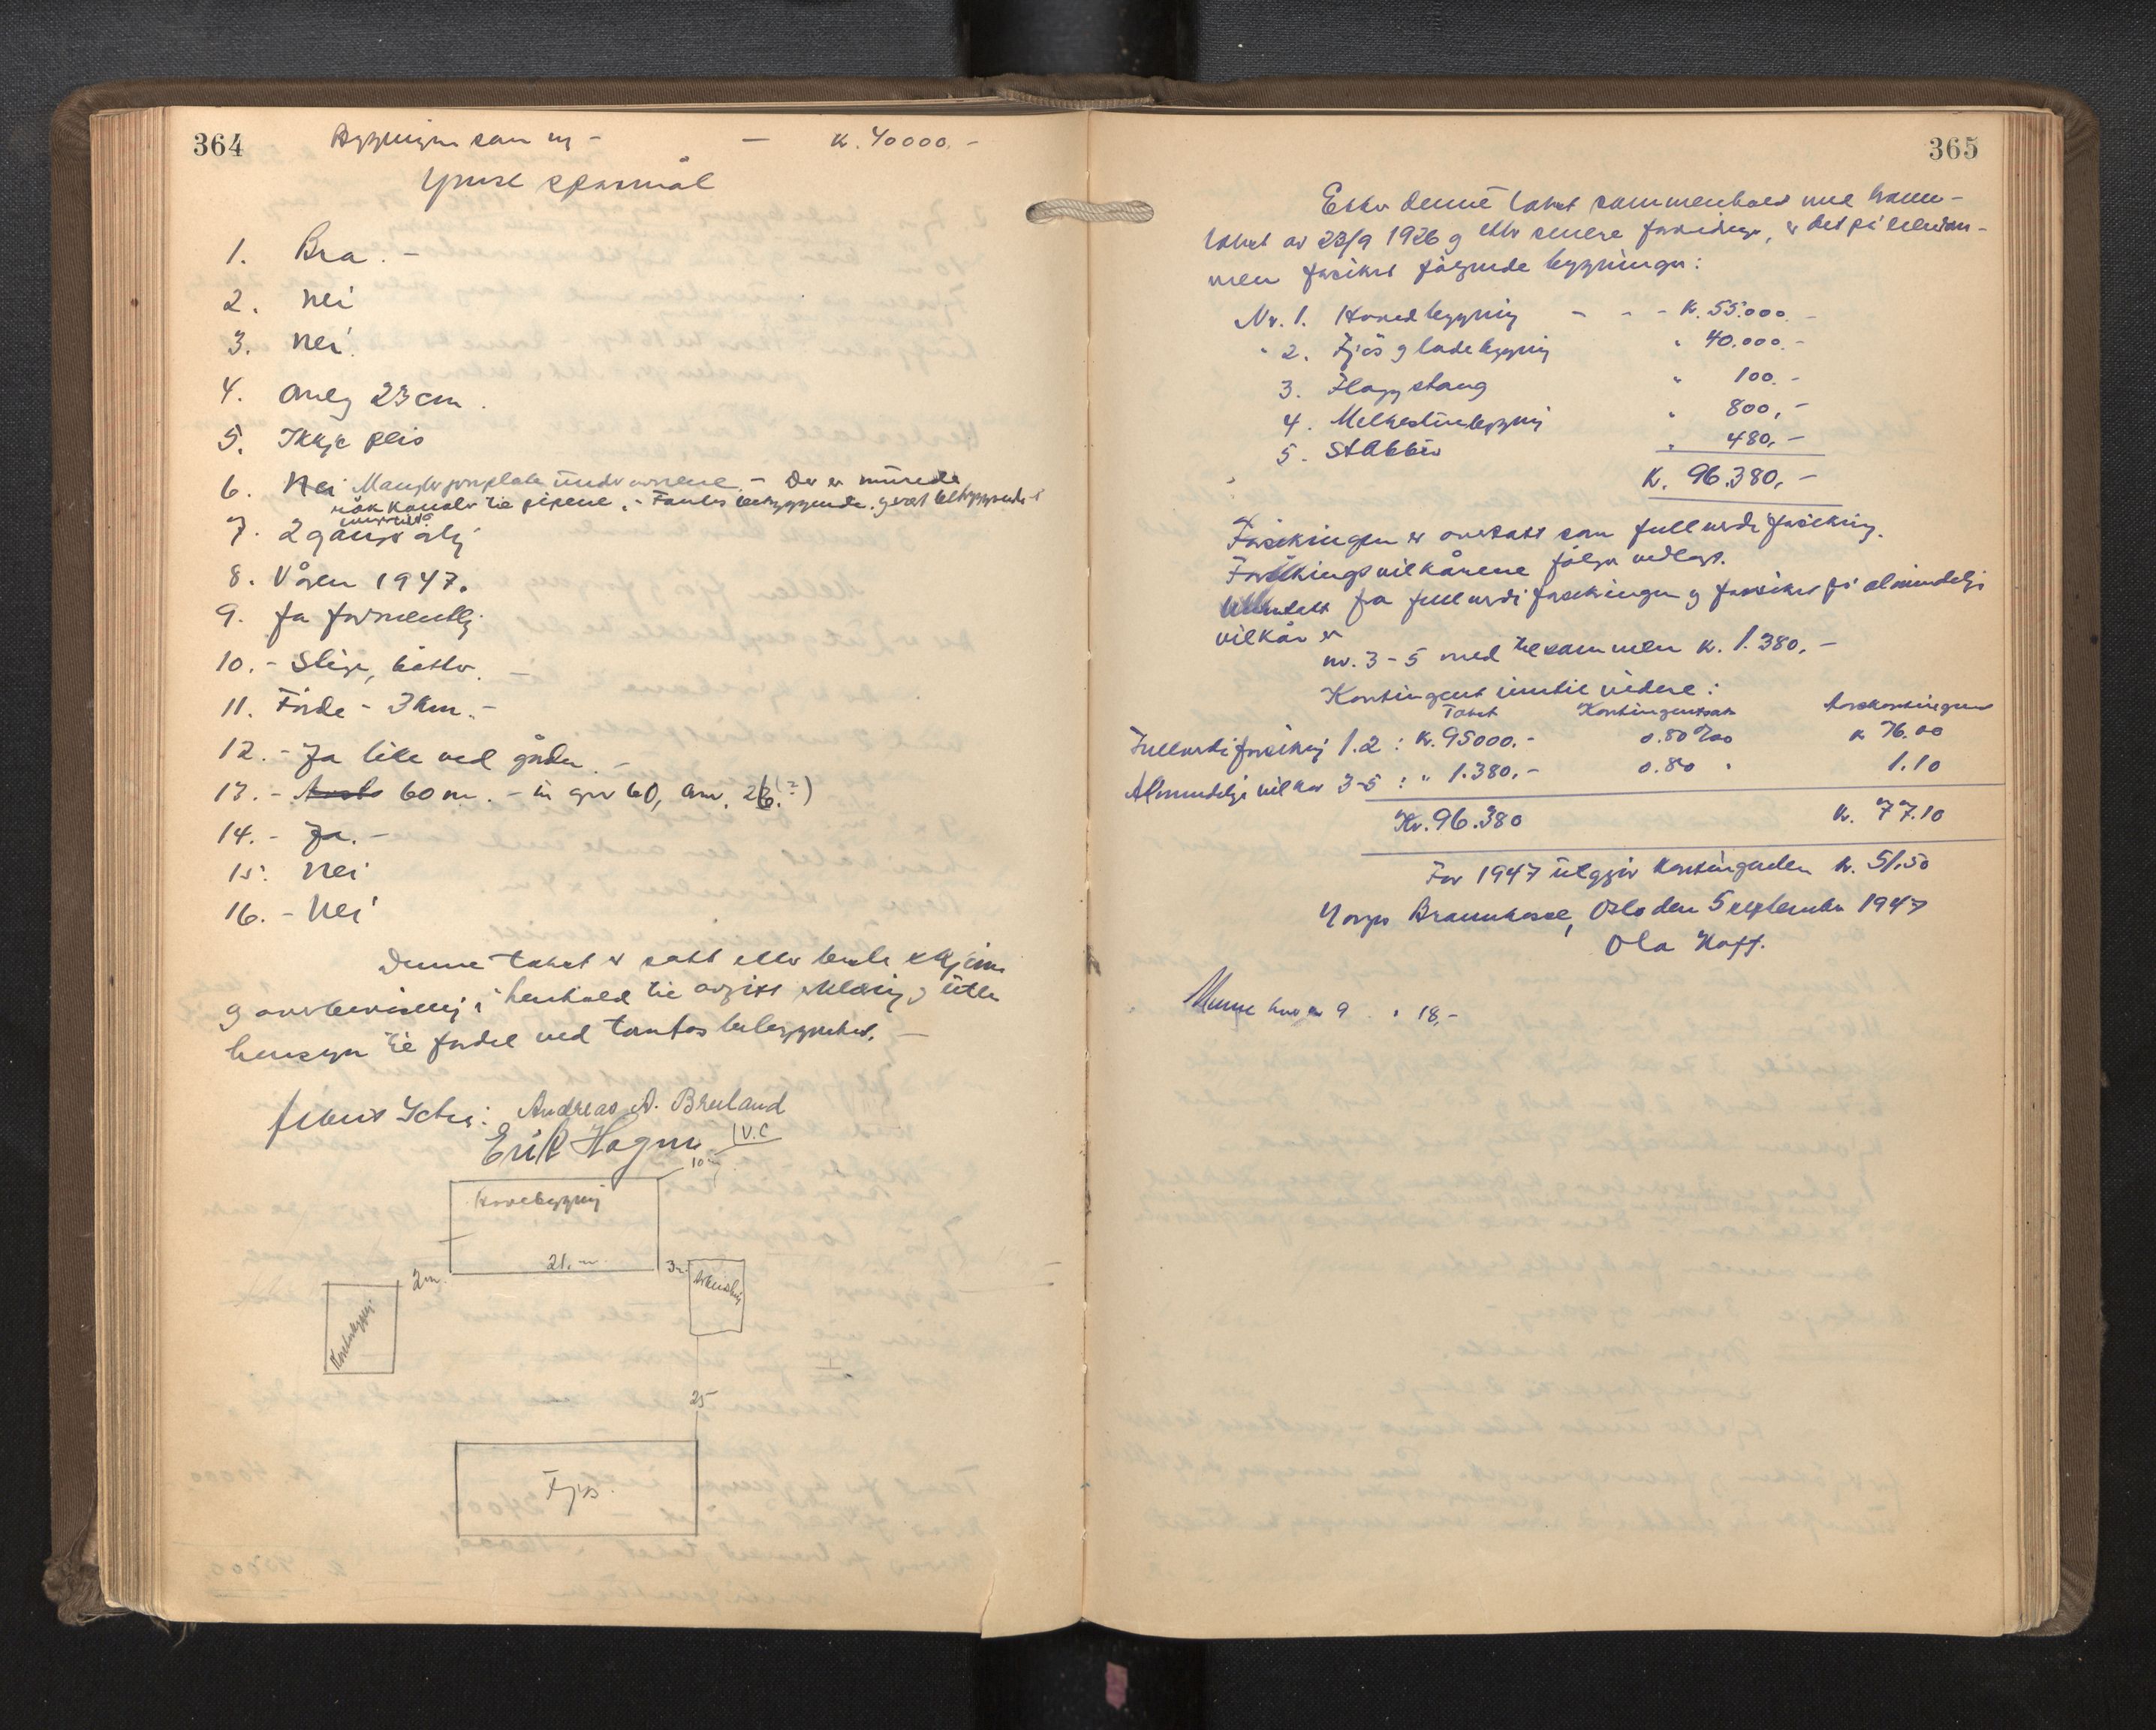 364
Bygningen som ny - — K. 40000.-
Ymse spørsmål
1. Bra. -
2. Nei
3. Nei.
4. Omlag 23 cm.
5. Ikkje peis
6. Nei Mangler jernplate under ovnene. - Der er murede
røk kanaler til pipene. -
7. 2 gange årlig
8. Våren 1947.
9. Ja formentlig
10. - Stige, bøtter. -
11. Förde - 3 km. -
12. - Ja like ved gården. -
13. - 60 m. -
14. - Ja. -
15. Nei
16. - Nei
Denne takst er satt etter beste skjönn
og overbevisning i henhold til avgitt erklæring og uten
hensyn til fordel ved tomtas beliggenhet. -
Andreas A. Bruland
Erik Hagen
IV.C
10 m
Hovebygning
21. m
2 m.
3 m.
25
Fjøs.
365
Etter denne takst sammenholdt med brann-
takst av 23/9 1926 og etter senere forandringer, er det på eiendom-
men forsikret følgende bygninger:
Nr. 1. Hovedbygning - - - K. 55.000.-
" 2. Fjös og ladebygning " 40.000.-
3. Flaggstang " 100.-
4. Melkestuebygning " 800,-
5. Stabbur " 480,-
K. 96.380,-
Forsikringen er overtatt som fullverdiforsikring.
Forsikringsvilkårene følger vedlagt.
Unntatt fra fullverdiforsikringen og forsikret på almindelige
vilkår er
nr. 3-5 med tilsammen K. 1.380,-
Kontingent inntil videre:
Takst Kontingentsats Årskontingent
Fullverdiforsikring 1.2 : K. 95000.- 0.80 ‰ K 76.00
Almindelige vilkår 3-5 : " 1.380,- 0.80 " 1.10
Kr. 96.380 K. 77.10
For 1947 utgjør kontingenten K. 51.50
Norges Brannkasse, Oslo den 5 september 1947
Ola Hoff.
9 " 18,-